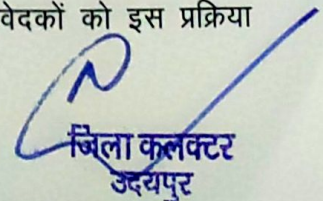 वेदकों को इस प्रक्रिया
जिला कलक्टर
उदयपुर